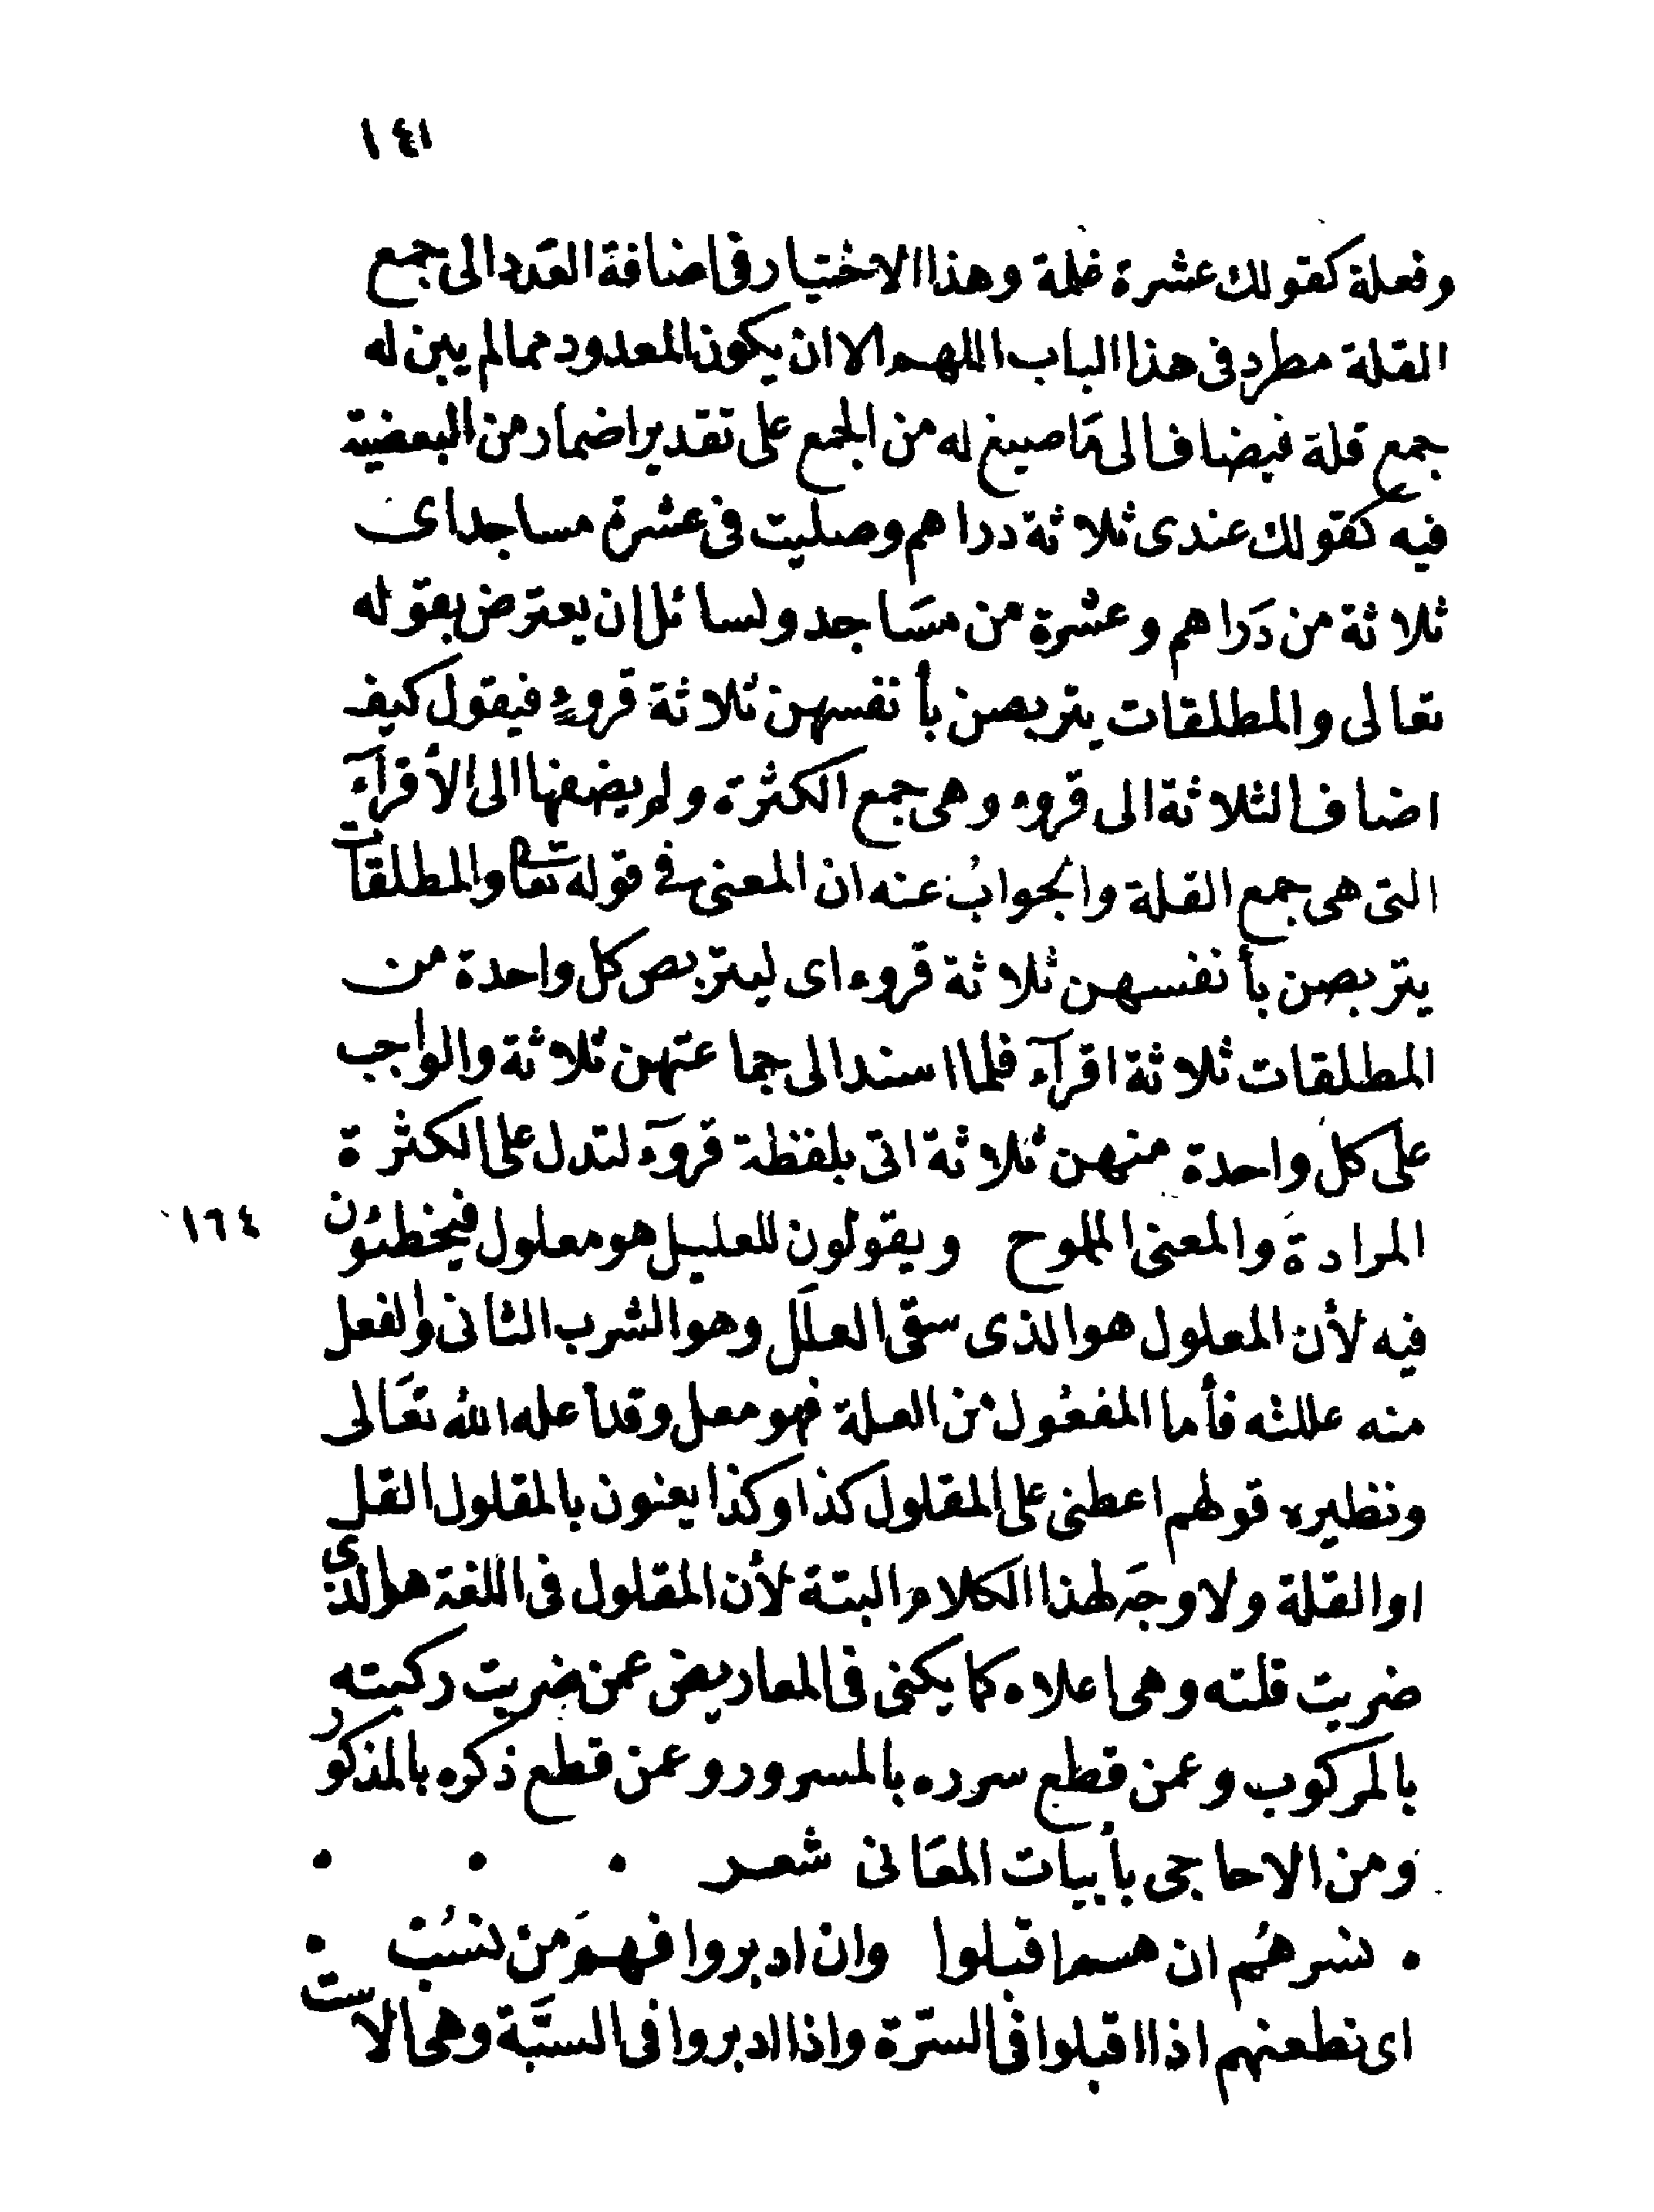 ١٤١
وفعلة كقولك عشرة غلمة وهذا الاختيار فى اضافة العَدد الى جمع
القلة مطرد فى هذا الباب اللهم الا ان يكون المعدود مما لم يبن له
جمع قلة فيضاف الى مَا صيغ له من الجمع على تقدير اضمار من البعضية
فيه كقولك عندى ثلاثة دراهم وصليت فى عشرة مساجد اى
ثلاثة من دَراهم وعشرة من مسَاجد ولسائل ان يعترض بقوله
تعالى والمطلقات يتربصن بأنفسهن ثلاثة قروءٍ فيقول كيف
اضاف الثلاثة الى قروء وهى جمع الكثرة ولم يضفها الى الأقرآء
التى هى جمع القلة والجوابُ عنه ان المعنى فى قوله تعا والمطلقات
يتربصن بأنفسهن ثلاثة قروء اى ليتربص كل واحدة من
المطلقات ثلاثة اقرآء فلما اسند الى جماعتهن ثلاثة والواجب
على كل واحدة منهن ثلاثة اتى بلفظة قروَء لتدل على الكثرة
المرادة والمعنى الملموح ويقولون للعليل هو معلول فيخطئون
١٦٤
فيه لأن المعلول هو الذى سقى العلَل وهو الشرب الثانى والفعل
منه عللته فأما المفعُول من العلة فهو معل وقد أعله الله تعَالى
ونظيره قولهم اعطنى على المقلول كذا وكذا يعنون بالمقلول القل
او القلة ولا وجَه لهذا الكلام البتة لأن المقلول فى اللغة هو الذى
ضربت قلته وهى اعلاه كما يكنى فى المعاريض عمن ضربت ركبته
بالمركوب وعمن قطع سرره بالمسرور وعمن قطع ذكره بالمذكور
ومن الاحاجى بأبيات المعَانى شعر
نسرهُم ان هم اقبلوا وان ادبروا فهمَ من نسُبّ
اى نطعنهم اذا اقبلوا فى السرّة واذا ادبروا فى السبَّة وهى الاست